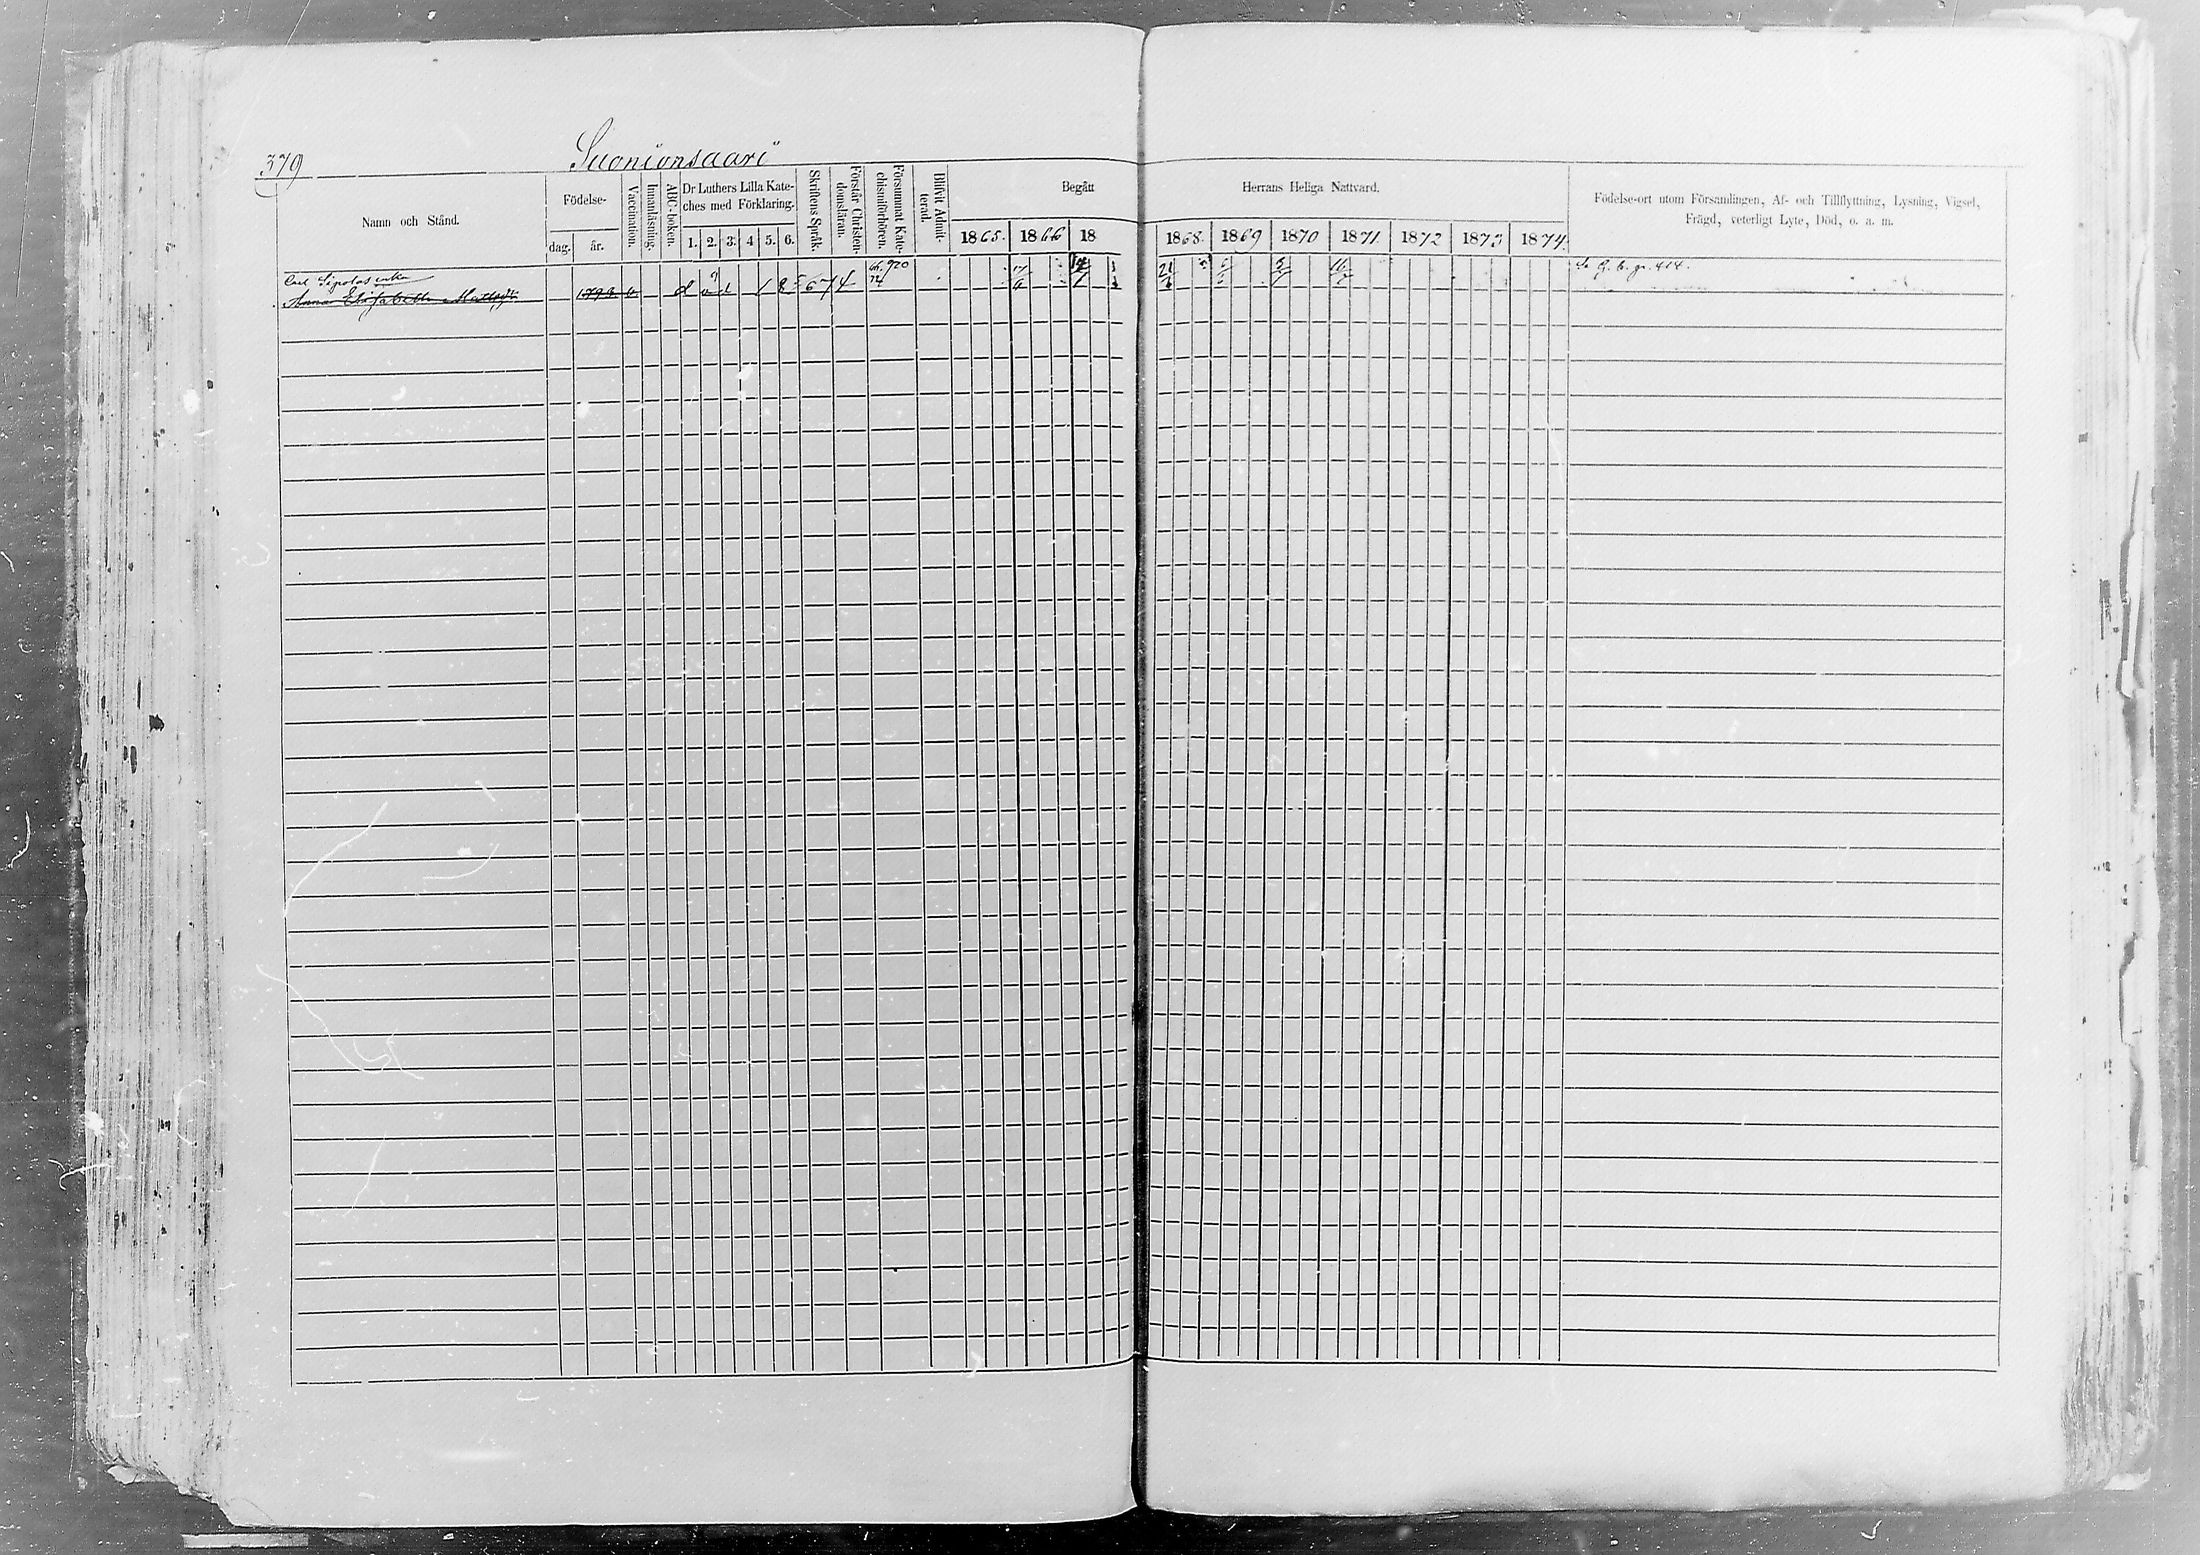 379 Suonionsaari
Namn och Stånd.
Födelse-
dag. år.
Vaccination.
Innanläsning.
ABC-boken.
Dr Luthers Lilla Kate-
ches med Förklaring.
1. 2. 3. 4 5. 6.
Skriftens Språk.
Förstår Christen-
domsläran.
Försummat Kate-
chismiförhören.
Blifvit Admit-
terad.
Begått Herrans Heliga Nattvard.
1865. 1866 18 1868. 1869 1870 1871. 1872 1873 1874.
Födelse-ort utom Församlingen, Af- och Tillflyttning, Lysning, Vigsel,
Frägd, veterligt Lyte, Död, o. a. m.
Carl enka
Anna Elisabeth 1793 v död 18 74